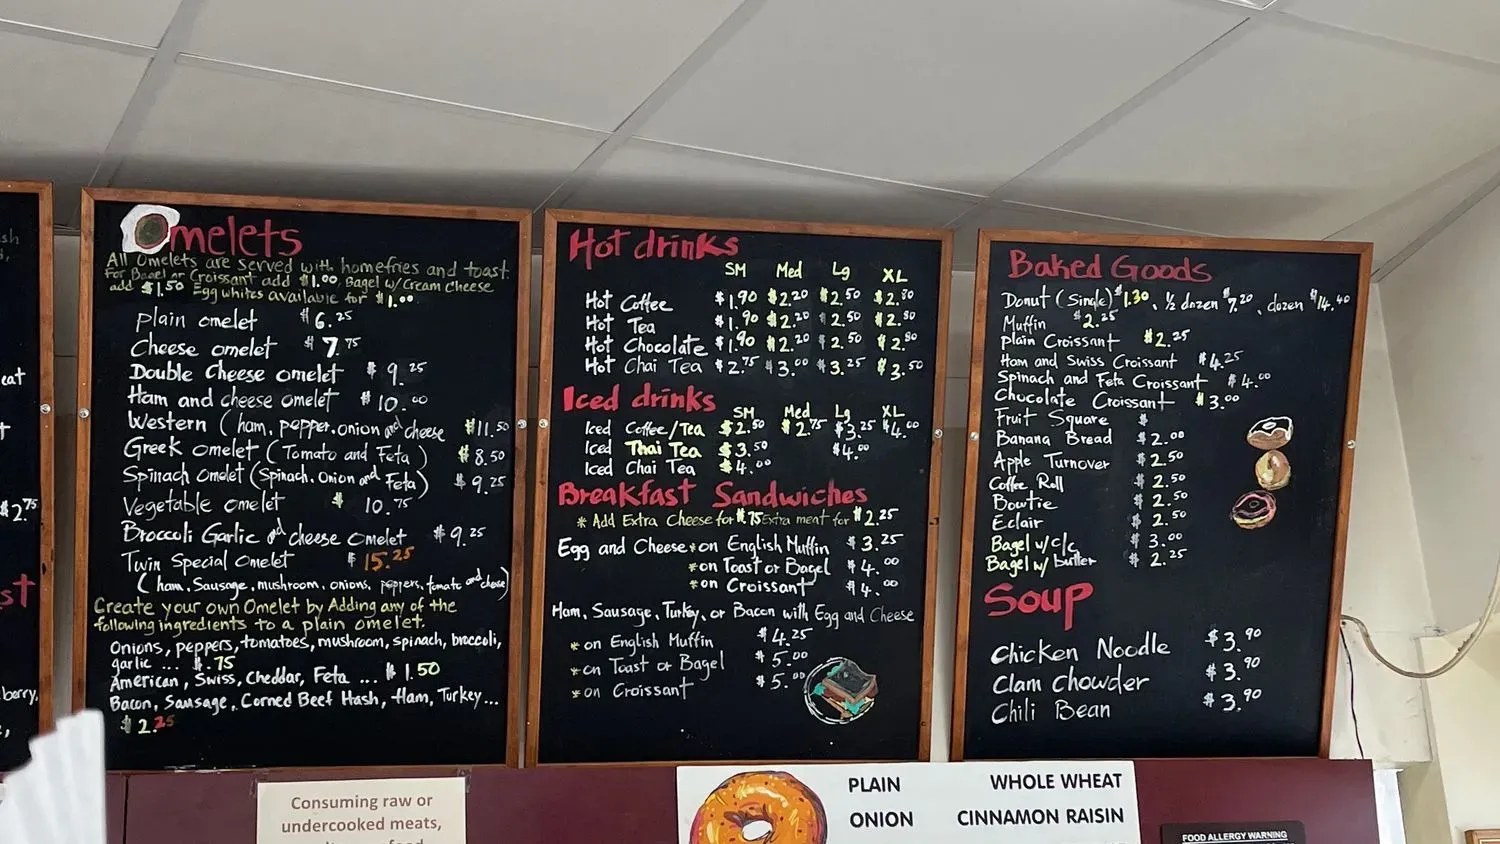 sh
eat
$2.75
st
berry,
Omelets
All Omelets are served with homefries and toast.
For Bagel or Croissant add $1.00, Bagel w/Cream Cheese
add $1.50 Egg whites available for $1.00
Plain omelet $6.25
Cheese omelet $7.75
Double Cheese omelet $9.25
Ham and cheese omelet $10.00
Western (ham, pepper, onion and cheese $11.50
Greek omelet (Tomato and Feta) $8.50
Spinach Omelet (Spinach, Onion and Feta) $9.25
Vegetable omelet $10.75
Broccoli Garlic and cheese Omelet $9.25
Twin Special Omelet $15.25
(ham, Sausage, mushroom, onions, peppers, tomato and cheese)
Create your own Omelet by Adding any of the
following ingredients to a plain omelet.
Onions, peppers, tomatoes, mushroom, spinach, broccoli,
garlic ... $.75
American, Swiss, Cheddar, Feta ... $1.50
Bacon, Sausage, Corned Beef Hash, Ham, Turkey...
$2.25
Hot drinks
SM Med Lg XL
Hot Coffee $1.90 $2.20 $2.50 $2.80
Hot Tea $1.90 $2.20 $2.50 $2.80
Hot Chocolate $1.90 $2.20 $2.50 $2.80
Hot Chai Tea $2.75 $3.00 $3.25 $3.50
Iced drinks
SM Med Lg XL
Iced Coffee/Tea $2.50 $2.75 $3.25 $4.00
Iced Thai Tea $3.50 $4.00
Iced Chai Tea $4.00
Breakfast Sandwiches
* Add Extra Cheese for $.75 Extra meat for $2.25
Egg and Cheese * on English Muffin $3.25
* on Toast or Bagel $4.00
* on Croissant $4.00
Ham, Sausage, Turkey, or Bacon with Egg and Cheese
* on English Muffin $4.25
* on Toast or Bagel $5.00
* on Croissant $5.00
Baked Goods
Donut (Single) $1.30, ½ dozen $7.20, dozen $14.40
Muffin $2.25
Plain Croissant $2.25
Ham and Swiss Croissant $4.25
Spinach and Feta Croissant $4.00
Chocolate Croissant $3.00
Fruit Square $
Banana Bread $2.00
Apple Turnover $2.50
Coffee Roll $2.50
Bowtie $2.50
Eclair $2.50
Bagel w/c/c $3.00
Bagel w/ butter $2.25
Soup
Chicken Noodle $3.90
Clam Chowder $3.90
Chili Bean $3.90
Consuming raw or
undercooked meats,
PLAIN WHOLE WHEAT
ONION CINNAMON RAISIN
FOOD ALLERGY WARNING